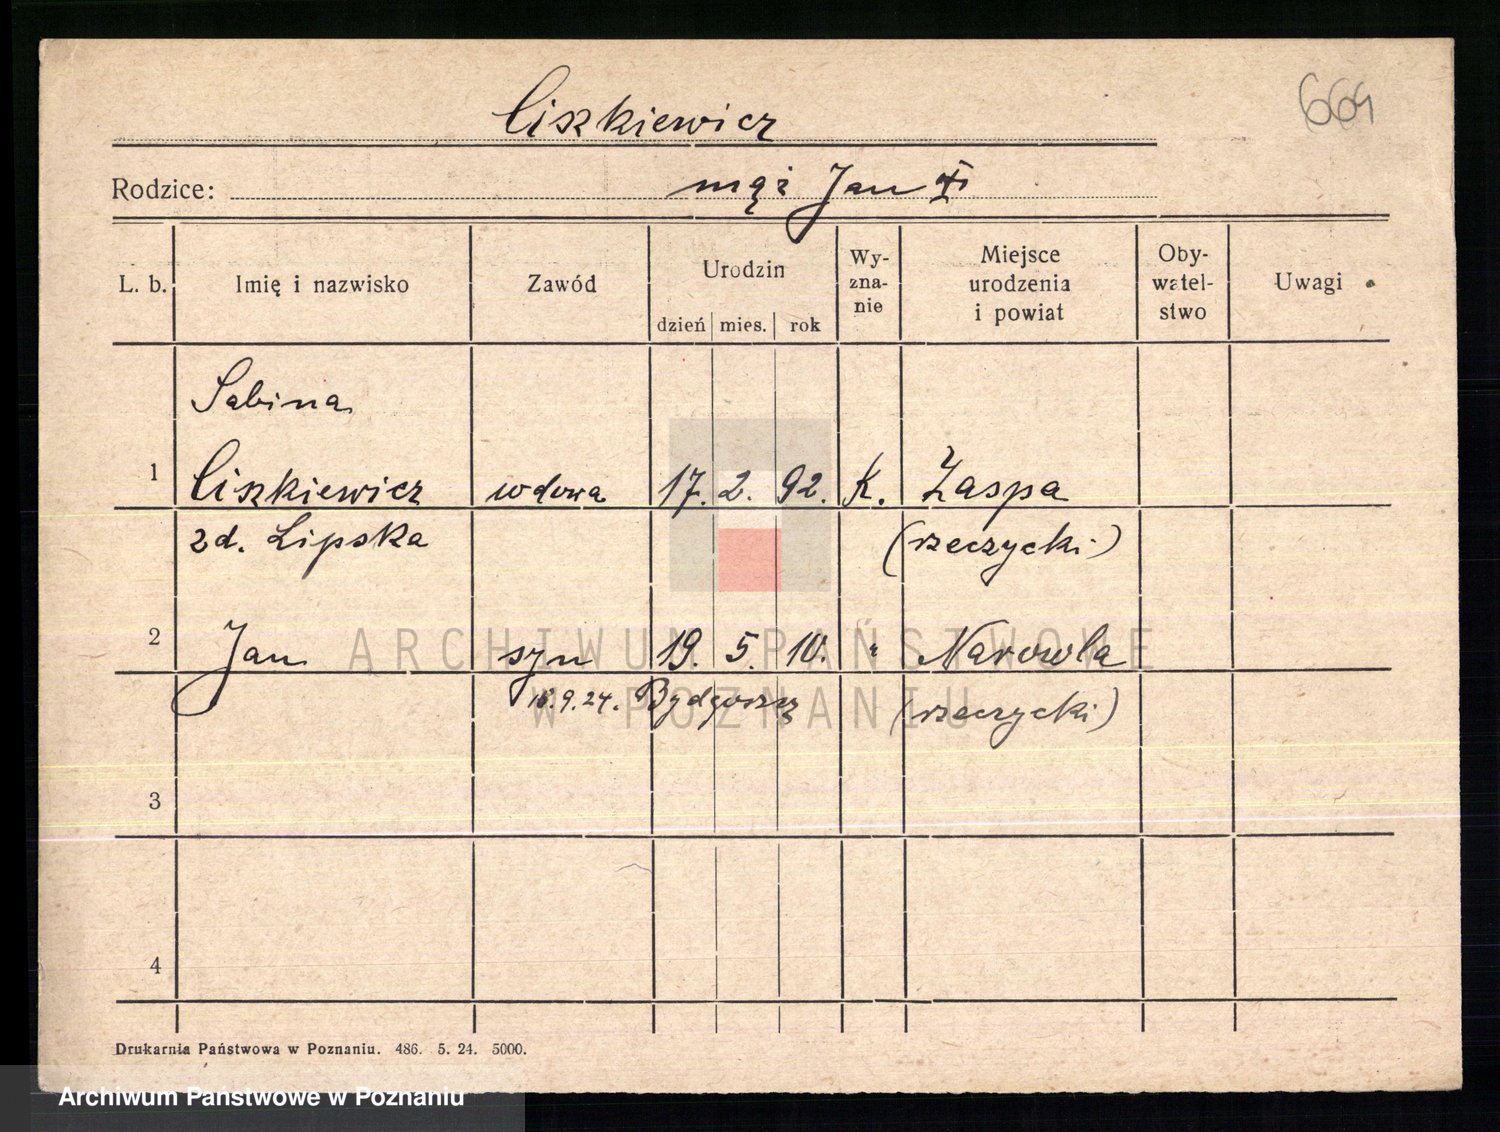 Ciszkiewicz
669
Rodzice: mąż Jan
L. b. Imię i nazwisko Zawód Urodzin dzień mies. rok Wy-zna-nie Miejsce urodzenia i powiat Oby-watel-stwo Uwagi
Sabina
1 Ciszkiewicz wdowa 17. 2. 92. K. Zaspa
zd. Lipska (rzeczycki)
2 Jan syn 19. 5. 10. " Narowla
18.9.24. Bydgoszcz (rzeczycki)
3
4
ARCHIWUM PAŃSTWOWE
W POZNANIU
Drukarnia Państwowa w Poznaniu. 486. 5. 24. 5000.
Archiwum Państwowe w Poznaniu